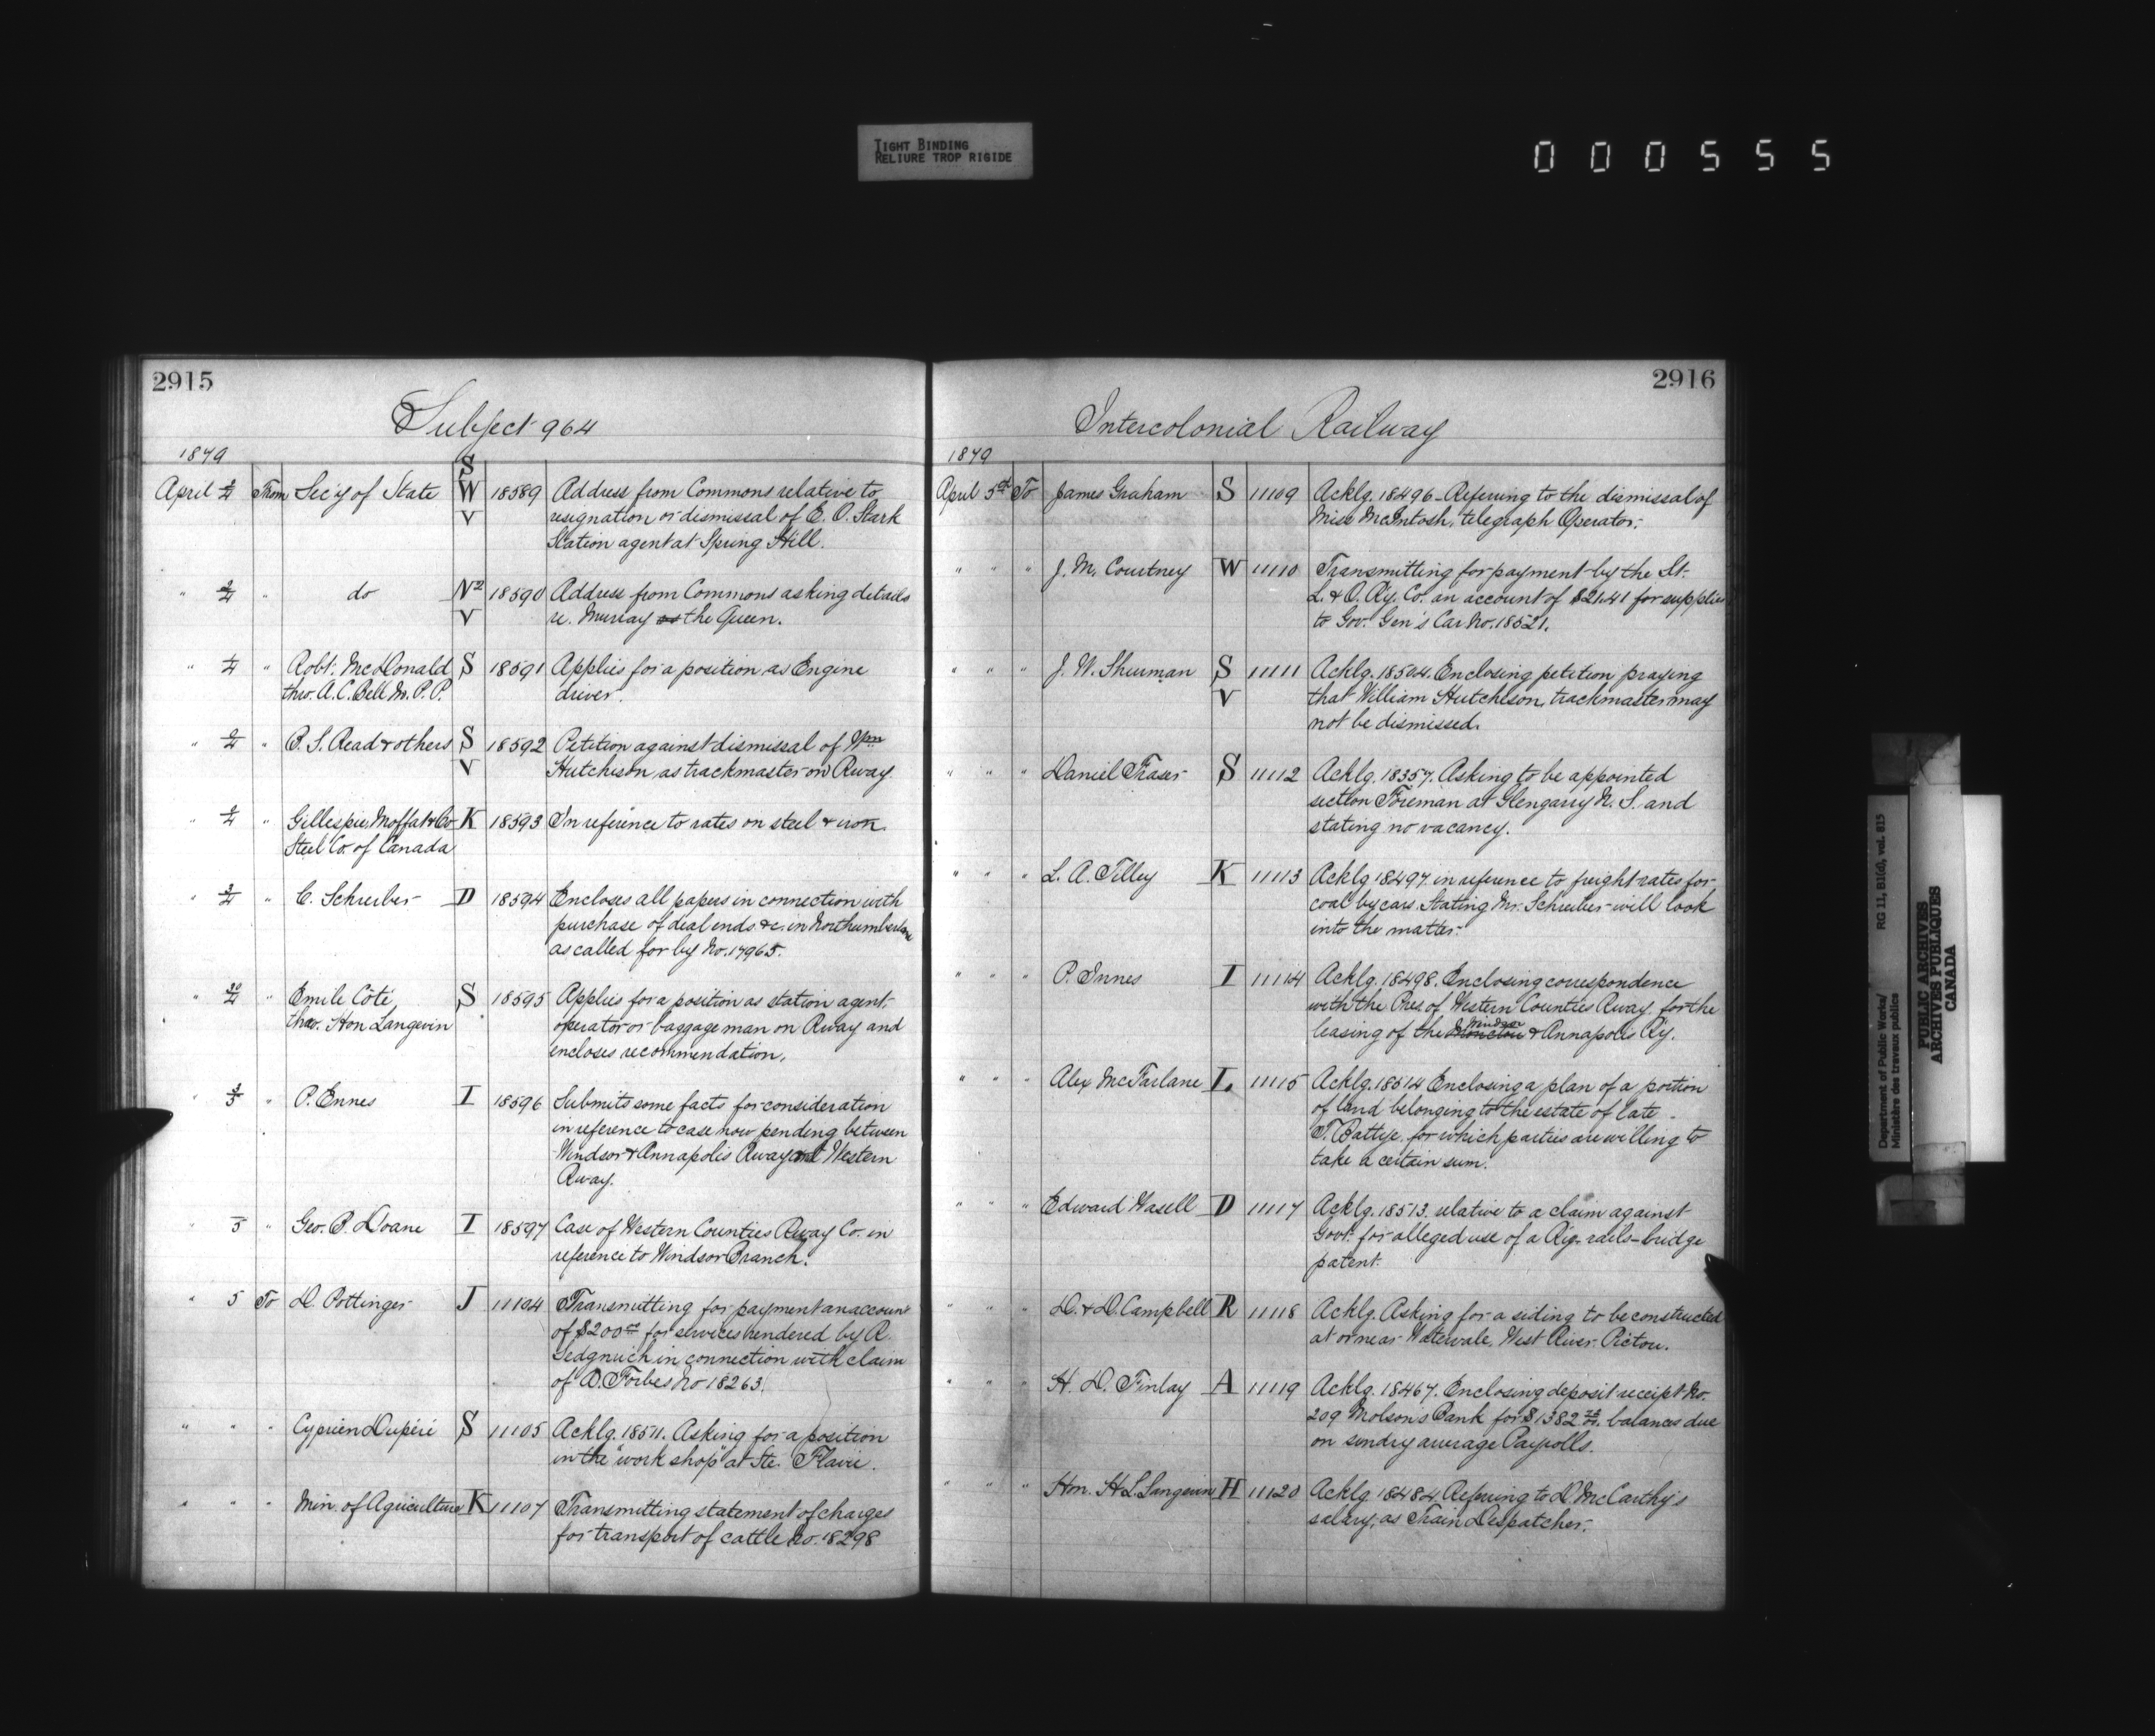 TIGHT BINDING
RELIURE TROP RIGIDE
000555
2915
Subject 964
1879
April 2/4 From Sec'y of State S W V 18589 Address from Commons relative to
resignation or dismissal of E. O. Stark
Station agent at Spring Hill.
" 2/4 " do N2 V 18590 Address from Commons asking details
re. Murray vs the Queen.
" 1/4 " Robt. McDonald S 18591 Applies for a position as Engine
thro. A. C. Bell M. P. P. driver.
" 2/4 " B. S. Read & others S V 18592 Petition against dismissal of Wm
Hutchison, as trackmaster on Rway
" 2/4 " Gillespie, Moffat & Co K 18593 In reference to rates on steel & iron.
Steel Co. of Canada
" 3/4 " C. Schreiber D 18594 Encloses all papers in connection with
purchase of deal ends &c. in Northumberland
as called for by No. 17965.
" " Emile Côté, S 18595 Applies for a position as station agent
thro. Hon Langevin operator or baggage man on Rway and
encloses recommendation.
" 3/5 " P. Ennes I 18596 Submits some facts for consideration
in reference to case now pending between
Windsor & Annapolis Rway and Western
Rway.
" 5 " Geo. B. Doane I 18597 Case of Western Counties Rway Co. in
reference to Windsor Branch.
" 5 To D. Pottinger J 11104 Transmitting for payment an account
of $200.00 for services rendered by R.
Sedgwick in connection with claim
of D. Forbes No 18263.
" " " Cyprien Dupéré S 11105 Acklg. 18511. Asking for a position
in the "work shop" at Ste. Flavie.
" " " Min. of Agriculture K 11107 Transmitting statement of charges
for transport of cattle No. 18298
2916
Intercolonial Railway
1879
April 5th To James Graham S 11109 Acklg. 18496 - Referring to the dismissal of
Miss McIntosh, telegraph Operator.
" " " J. M. Courtney W 11110 Transmitting for payment by the St.
L. & O. Ry. Co. an account of $21.41 for supplies
to Gov. Gen's Car No. 18521.
" " J. W. Shurman S V 11111 Acklg. 18504. Enclosing petition praying
that William Hutchison, trackmaster may
not be dismissed.
" " " Daniel Fraser S 11112 Acklg. 18357. Asking to be appointed
section Foreman at Glengarry N. S. and
stating no vacancy.
" " " L. A. Tilley K 11113 Acklg 18497. in reference to freight rates for
coal by cars. Stating Mr. Schreiber will look
into the matter.
" " " P. Innes I 11114 Acklg. 18498. Enclosing correspondence
with the Pres. of Western Counties Rway. for the
leasing of the Moncton Windsor & Annapolis Ry.
" " " Alex McFarlane L 11115 Acklg. 18514 Enclosing a plan of a portion
of land belonging to the estate of late
T. Battye. for which parties are willing to
take a certain sum.
" " " Edward Hasell D 11117 Acklg. 18513. relative to a claim against
Govt. for alleged use of a Ry. rails - bridge
patent.
" " " D. & D. Campbell R 11118 Acklg. Asking for a siding to be constructed
at or near Watervale, West River Pictou.
" " " H. D. Finlay A 11119 Acklg. 18467. Enclosing deposit receipt No.
209 Molson's Bank for $1382 balances due
on sundry average Payrolls.
" " " Hon. H. L. Langevin H 11120 Acklg. 18484. Referring to D. McCarthy's
salary, as Train Despatcher.
Department of Public Works/
Ministère des travaux publics
RG 11, B1(d), vol. 815
PUBLIC ARCHIVES
ARCHIVES PUBLIQUES
CANADA